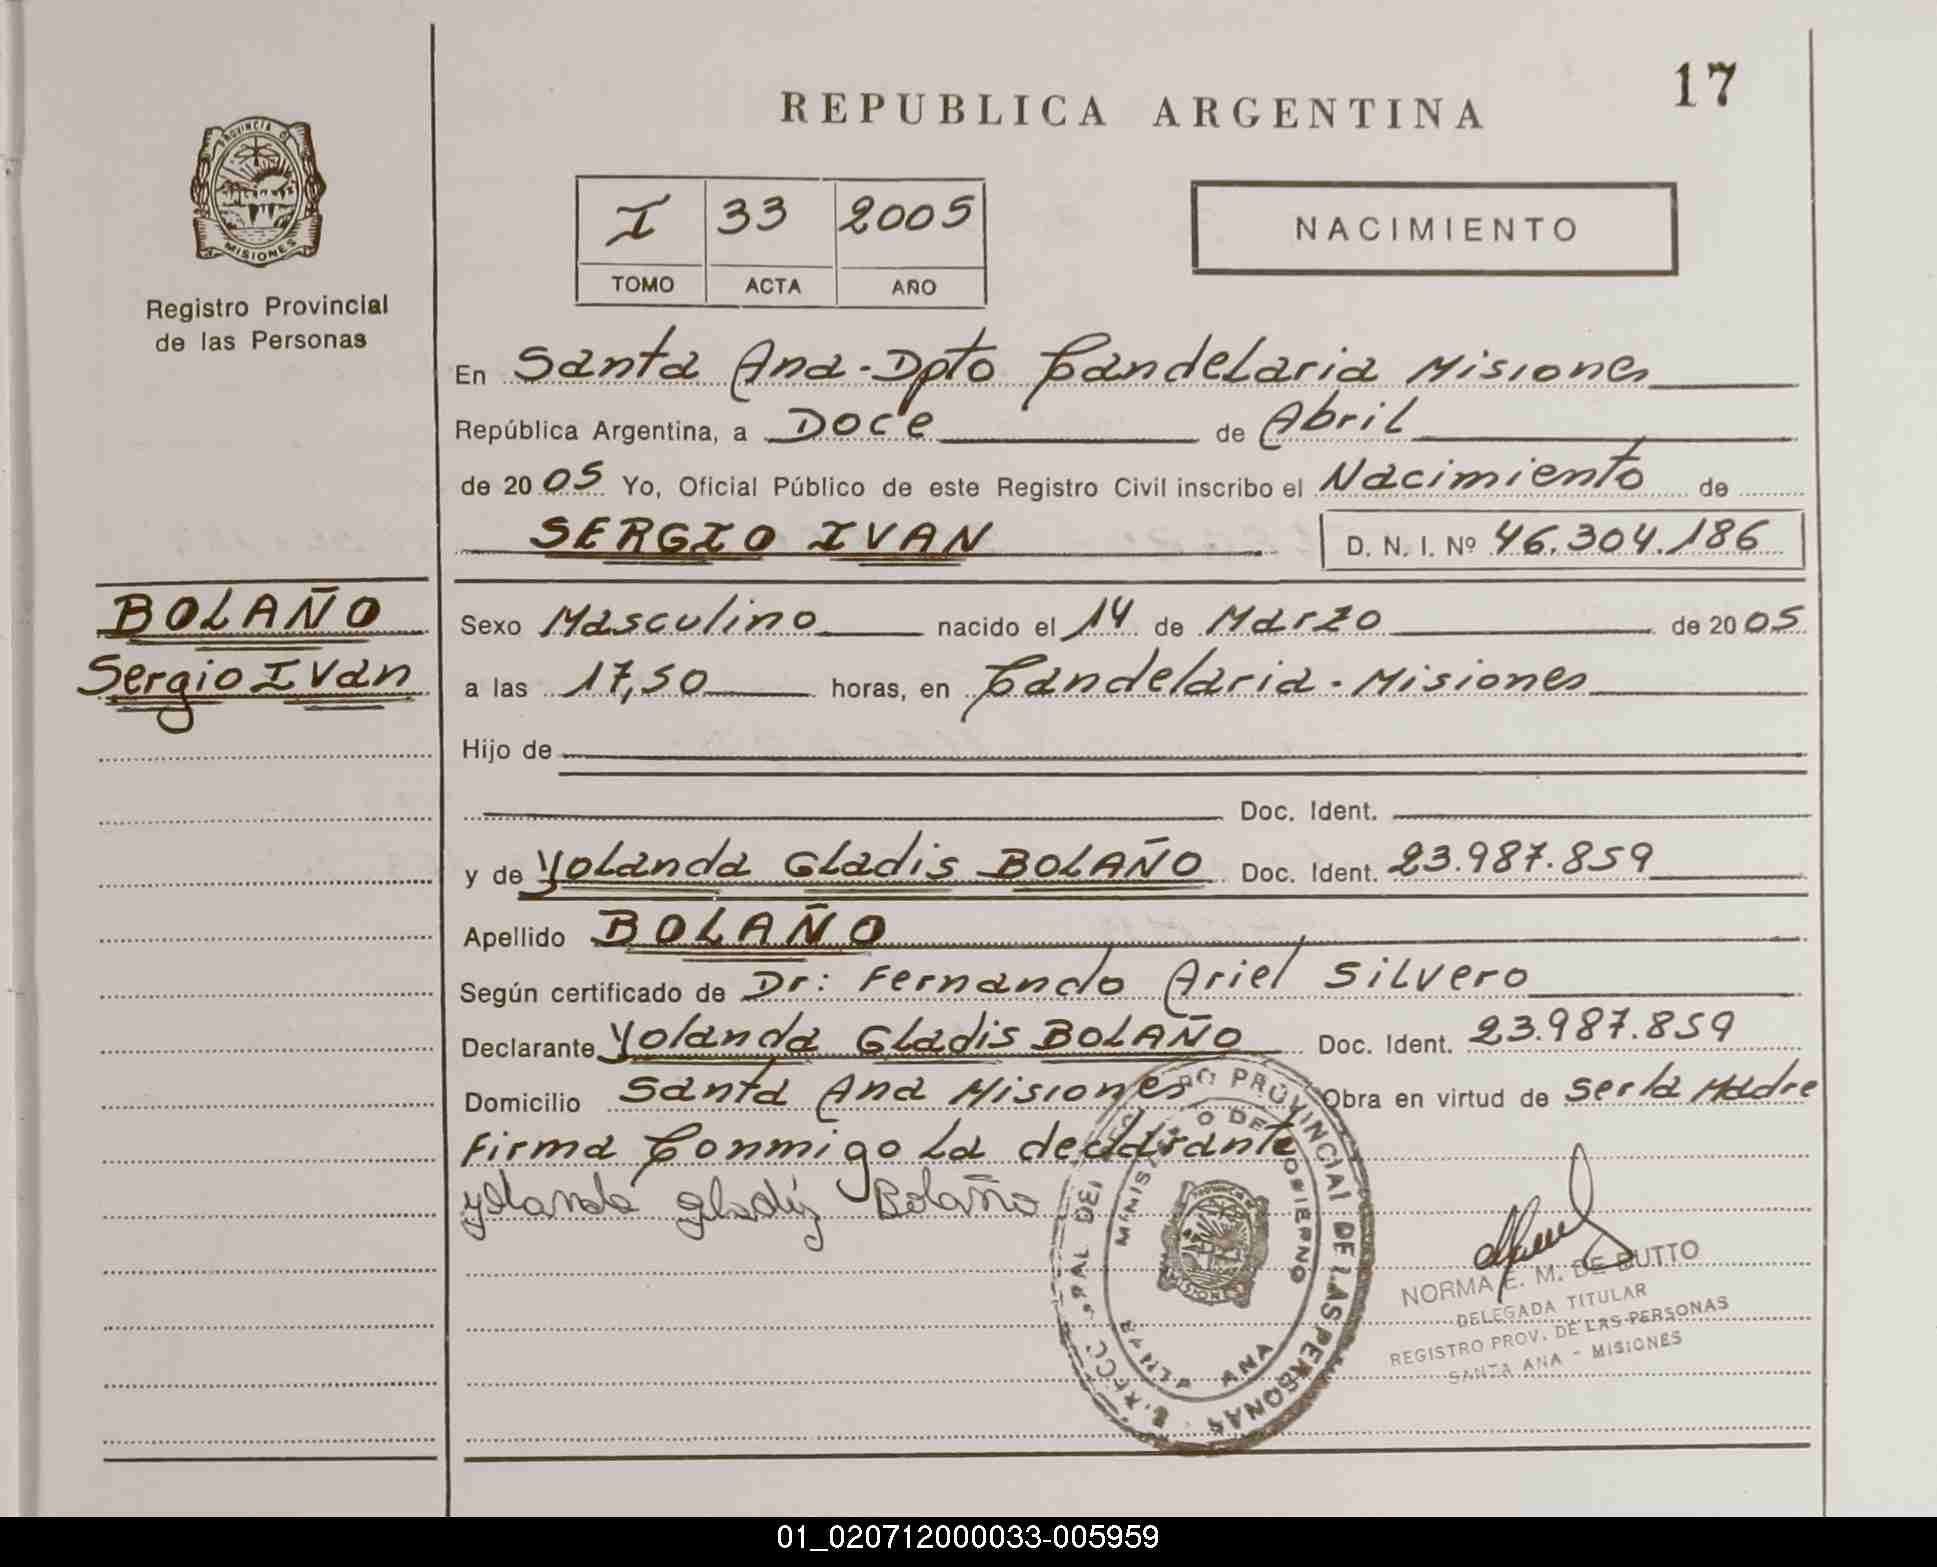 17
REPUBLICA ARGENTINA
PROVINCIA DE
MISIONES
Registro Provincial
de las Personas
I 33 2005
TOMO ACTA AÑO
NACIMIENTO
En Santa Ana-Dpto Candelaria Misiones
República Argentina, a Doce de Abril
de 2005 Yo, Oficial Público de este Registro Civil inscribo el Nacimiento de
SERGIO IVAN D. N. I. Nº 46.304.186
BOLAÑO
Sergio Ivan
Sexo Masculino nacido el 14 de Marzo de 2005
a las 17,50 horas, en Candelaria-Misiones
Hijo de
Doc. Ident.
y de Yolanda Gladis BOLAÑO Doc. Ident. 23.987.859
Apellido BOLAÑO
Según certificado de Dr: Fernando Ariel Silvero
Declarante Yolanda Gladis BOLAÑO Doc. Ident. 23.987.859
Domicilio Santa Ana Misiones Obra en virtud de Ser la Madre
Firma Conmigo La declarante
yolanda gladis Bolaño
PROVINCIAL DE LAS PERSONAS
MINISTERIO DE GOBIERNO
SANTA ANA
MISIONES
NORMA E. M. DE BUTTO
DELEGADA TITULAR
REGISTRO PROV. DE LAS PERSONAS
SANTA ANA - MISIONES
01_020712000033-005959